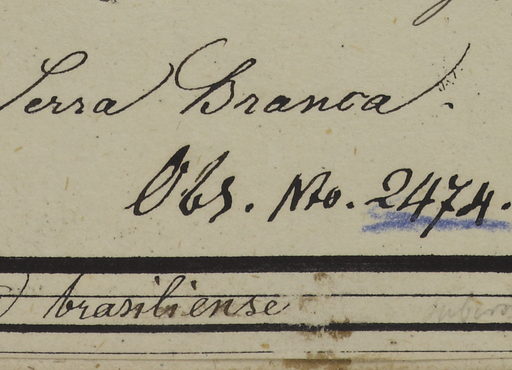 Serra Branca.
Obs. No. 2474.
brasiliense